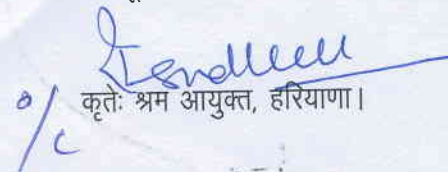 o/c
कृतेः श्रम आयुक्त, हरियाणा।